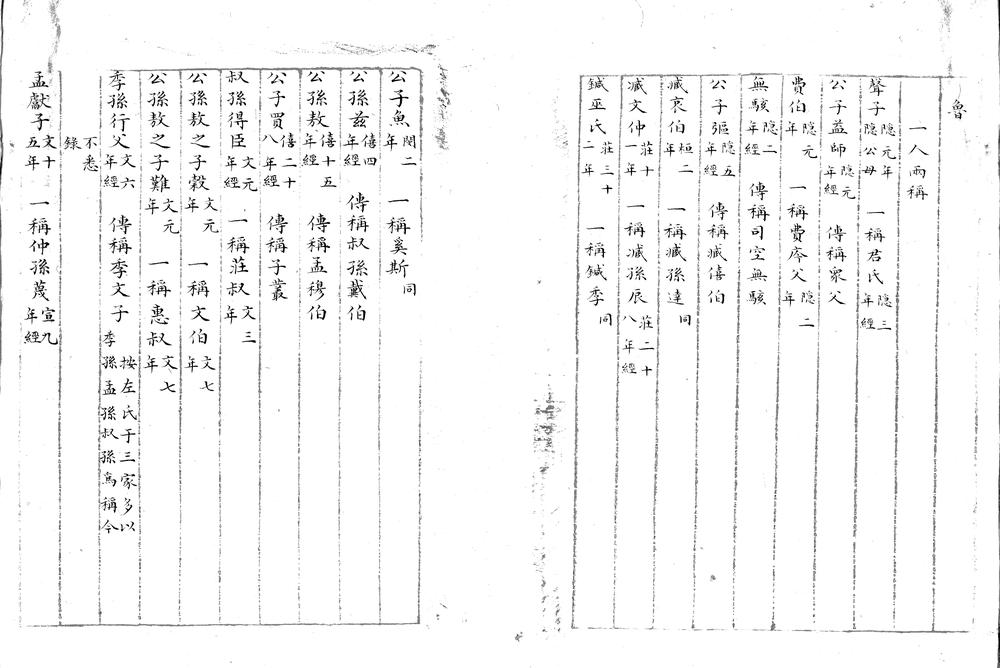 魯
一人兩稱
聲子隱元年隱公母 一稱君氏隱三年經
公子益師隱元年經 傳稱眾父
費伯隱元年 一稱費庈父隱二年
無駭隱二年經 傳稱司空無駭
公子彄隱五年經 傳稱臧僖伯
臧哀伯桓二年 一稱臧孫達同
臧文仲莊十一年 一稱臧孫辰莊二十八年經
鍼巫氏莊三十二年 一稱鍼季同
公子魚閔二年 一稱奚斯同
公孫茲僖四年經 傳稱叔孫戴伯
公孫敖僖十五年經 傳稱孟穆伯
公子買僖二十八年經 傳稱子叢
叔孫得臣文元年經 一稱莊叔文三年
公孫敖之子穀文元年 一稱文伯文七年
公孫敖之子難文元年 一稱惠叔文七年
季孫行父文六年經 傳稱季文子按左氏于三家多以季孫孟孫叔孫爲稱今
不悉錄
孟獻子文十五年 一稱仲孫蔑宣九年經